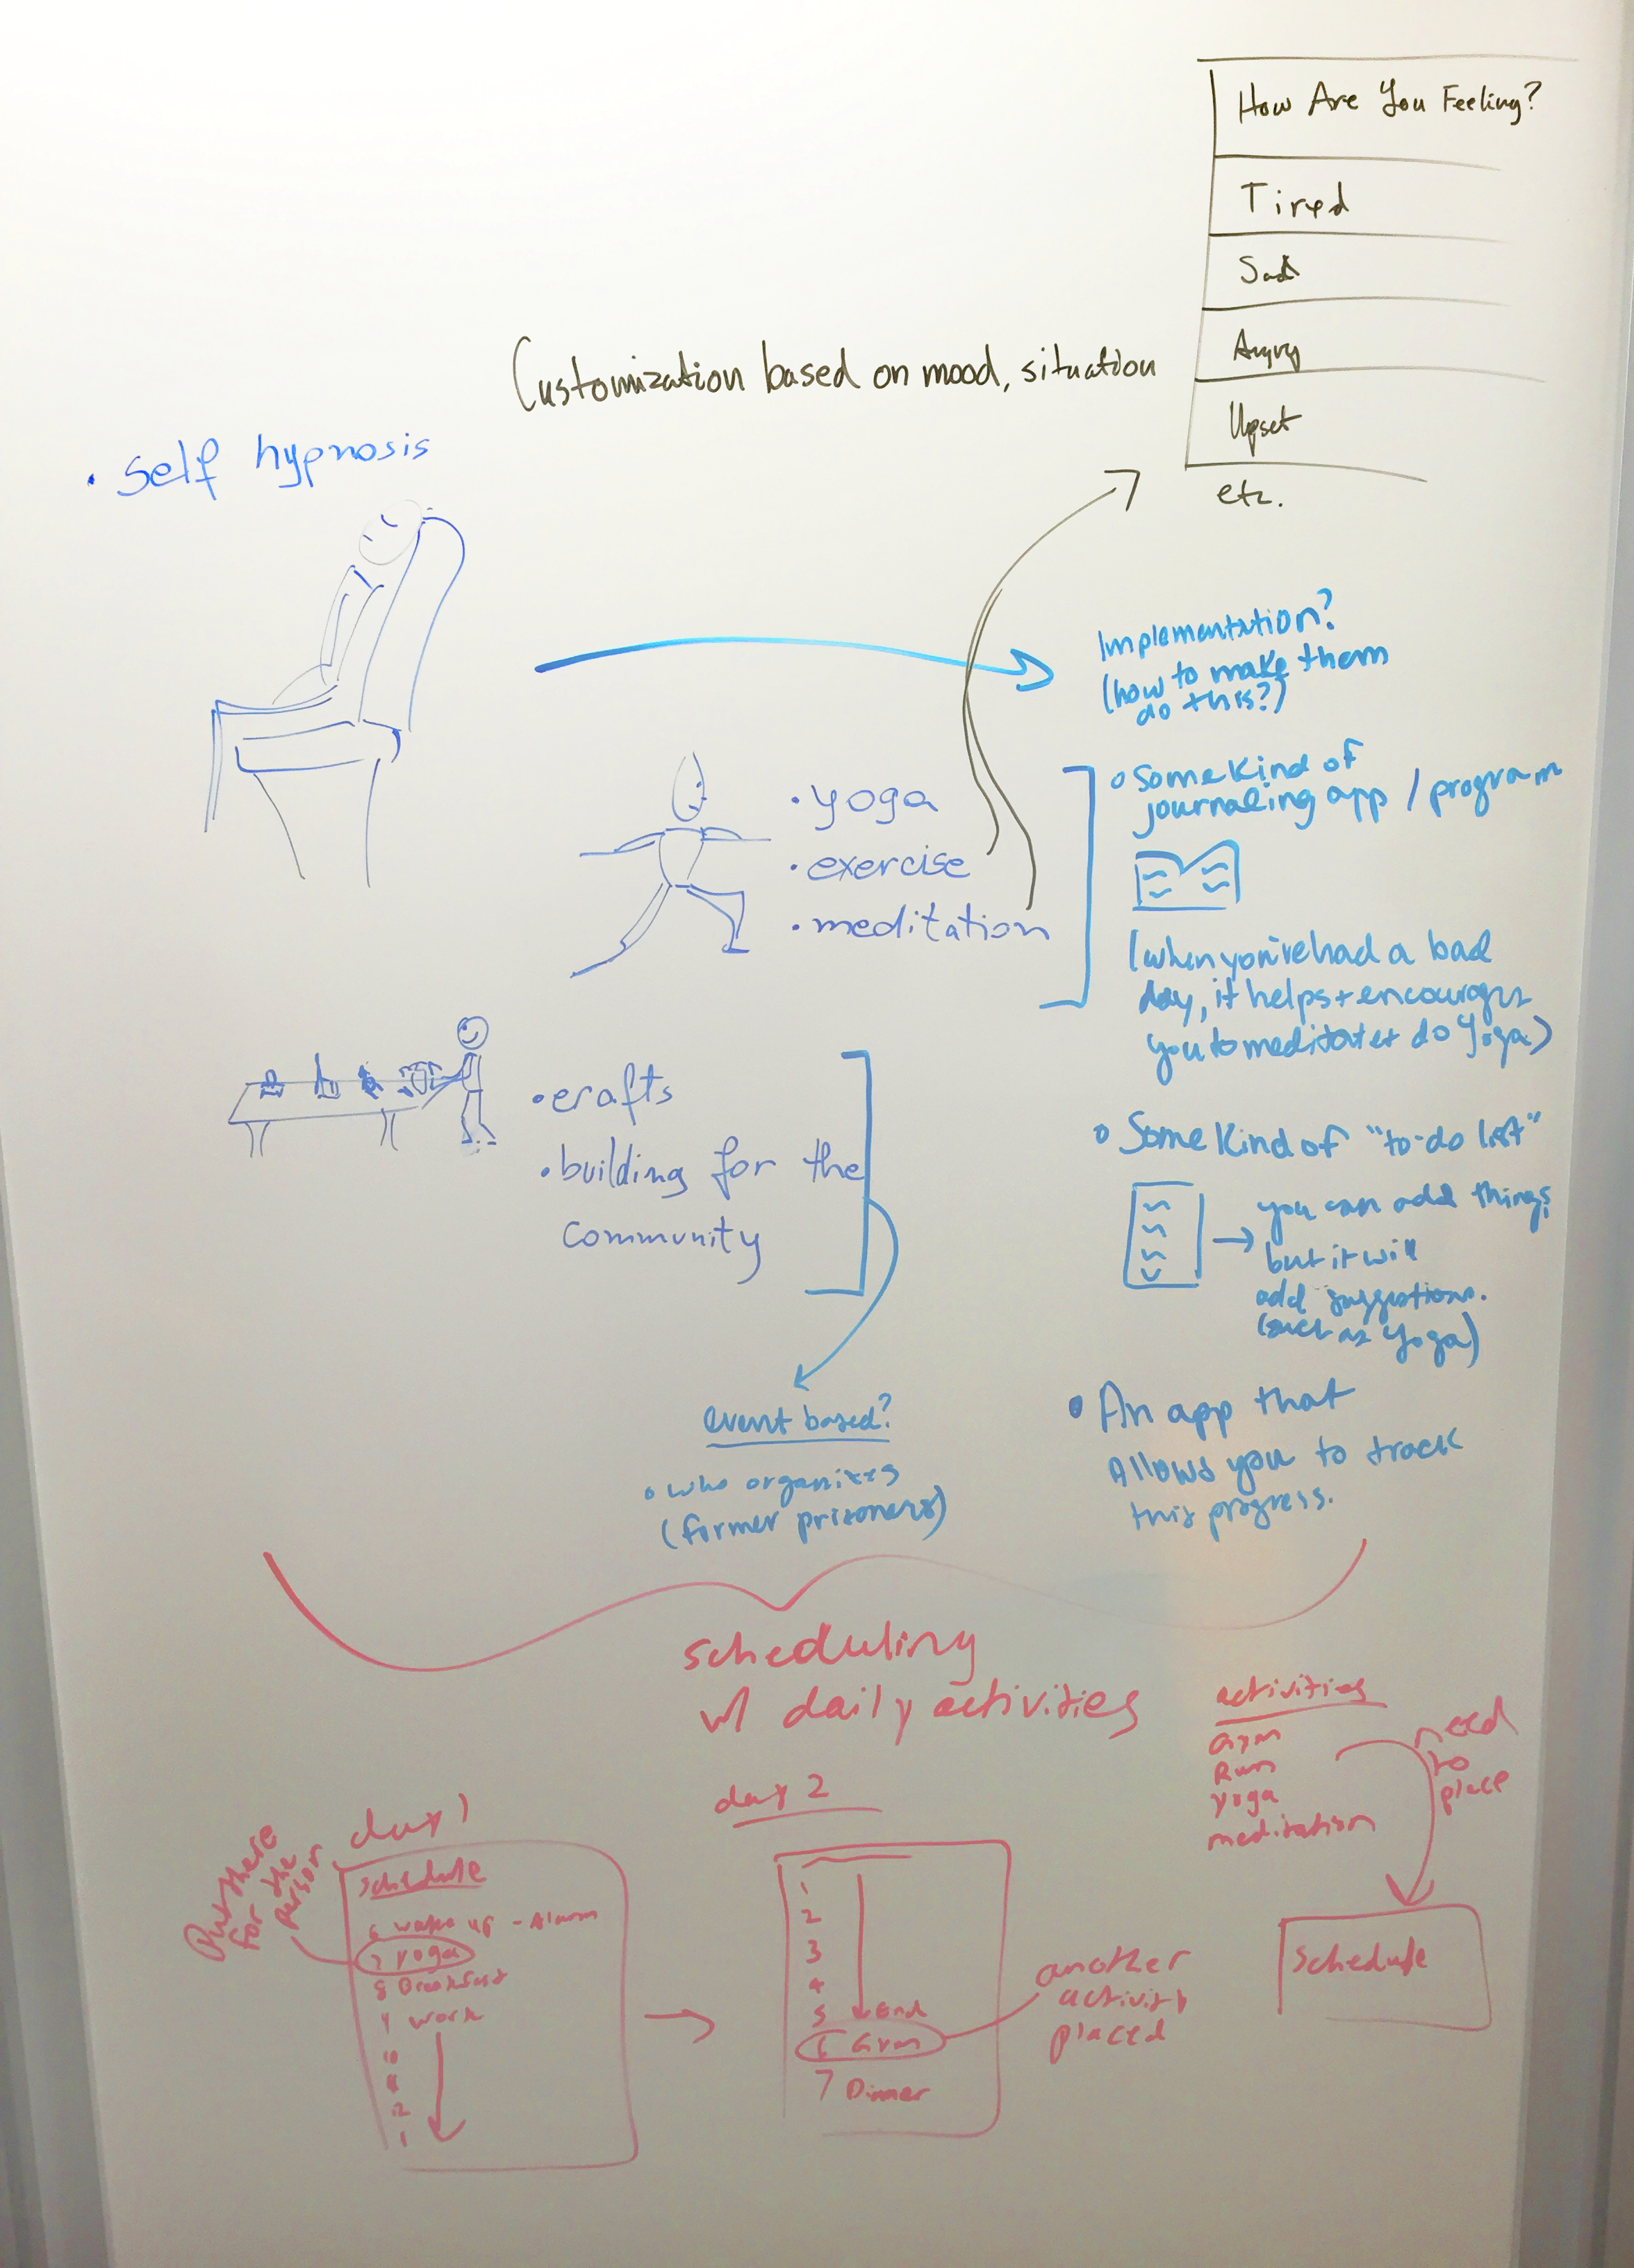 How Are You Feeling?
Tired
Sad
Angry
Upset
etc.
Customization based on mood, situation
• self hypnosis
Implementation?
(how to make them
do this?)
• yoga
• exercise
• meditation
o Some kind of
journaling app / program
(when you've had a bad
day, it helps + encourages
you to meditate + do Yoga)
• crafts
• building for the
community
o Some kind of "to-do list"
→ you can add things
but it will
add suggestions.
(such as Yoga)
event based?
• who organizes
(former prisoners)
• An app that
Allows you to track
this progress.
scheduling
w/ daily activities
activities
Gym
Run
Yoga
meditation
need
to
place
schedule
Put these
for the
person
day 1
schedule
6 wake up - Alarm
7 Yoga
8 Breakfast
9 work
10
11
12
1
day 2
1
2
3
4
5 End
6 Gym
7 Dinner
another
activity
placed